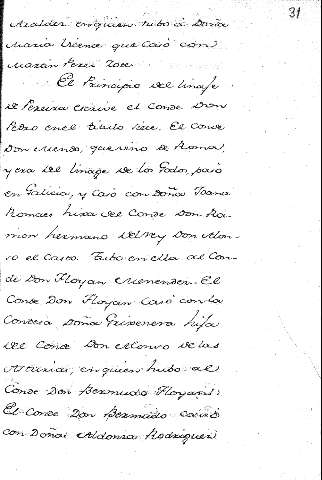 31
Alcalder, en quien hubo á Doña
Maria Vicente que Casó con
Martin Perez Zote.
El Principio del linaje
de Pereira escrive el Conde Don
Pedro en el titulo siete. El Conde
Don Mendo, que vino de Roma,
y era del linage de los Godos, pasó
en Galicia, y Casó con Doña Joana
Romaes hixa del Conde Don Ra-
mon hermano del Rey Don Alon-
so el Casto. Hubo en ella al Con-
de Don Floyan Menendez. El
Conde Don Floyan Casó con la
Condesa Doña Grixenera hija
del Conde Don Alonso de las
Asturias, en quien hubo al
Conde Don Bermudo Floyans:
El Conde Don Bermudo casó
con Doña Aldonsa Rodriguez